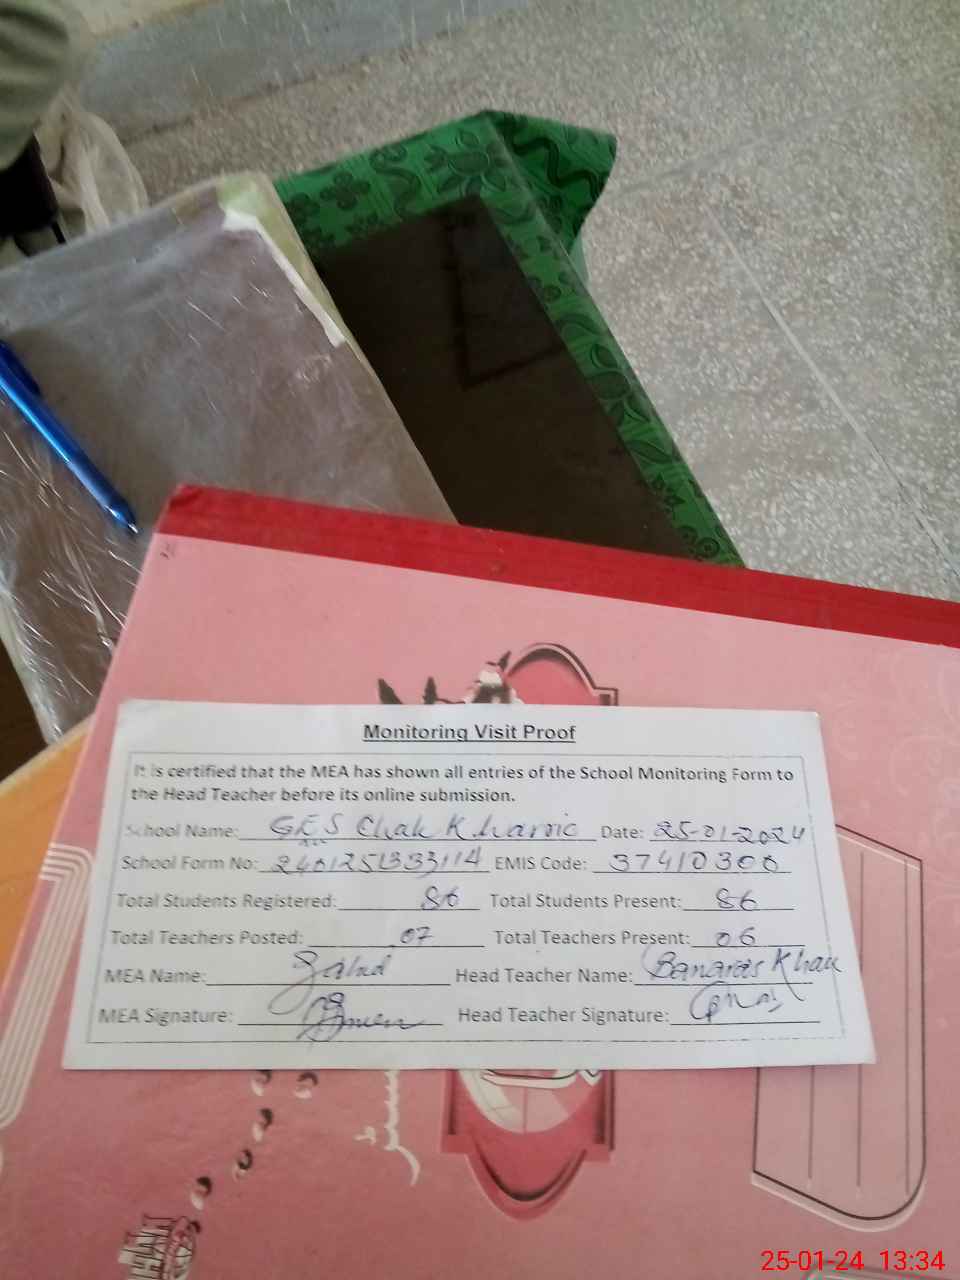 Monitoring Visit Proof
It is certified that the MEA has shown all entries of the School Monitoring Form to
the Head Teacher before its online submission.
School Name: GES Chak Kharric Date: 25-01-2024
School Form No: 2401251333114 EMIS Code: 37410306
Total Students Registered: 86 Total Students Present: 86
Total Teachers Posted: 07 Total Teachers Present: 06
MEA Name: Head Teacher Name: Banaras Khan
MEA Signature: Head Teacher Signature:
25-01-24 13:34